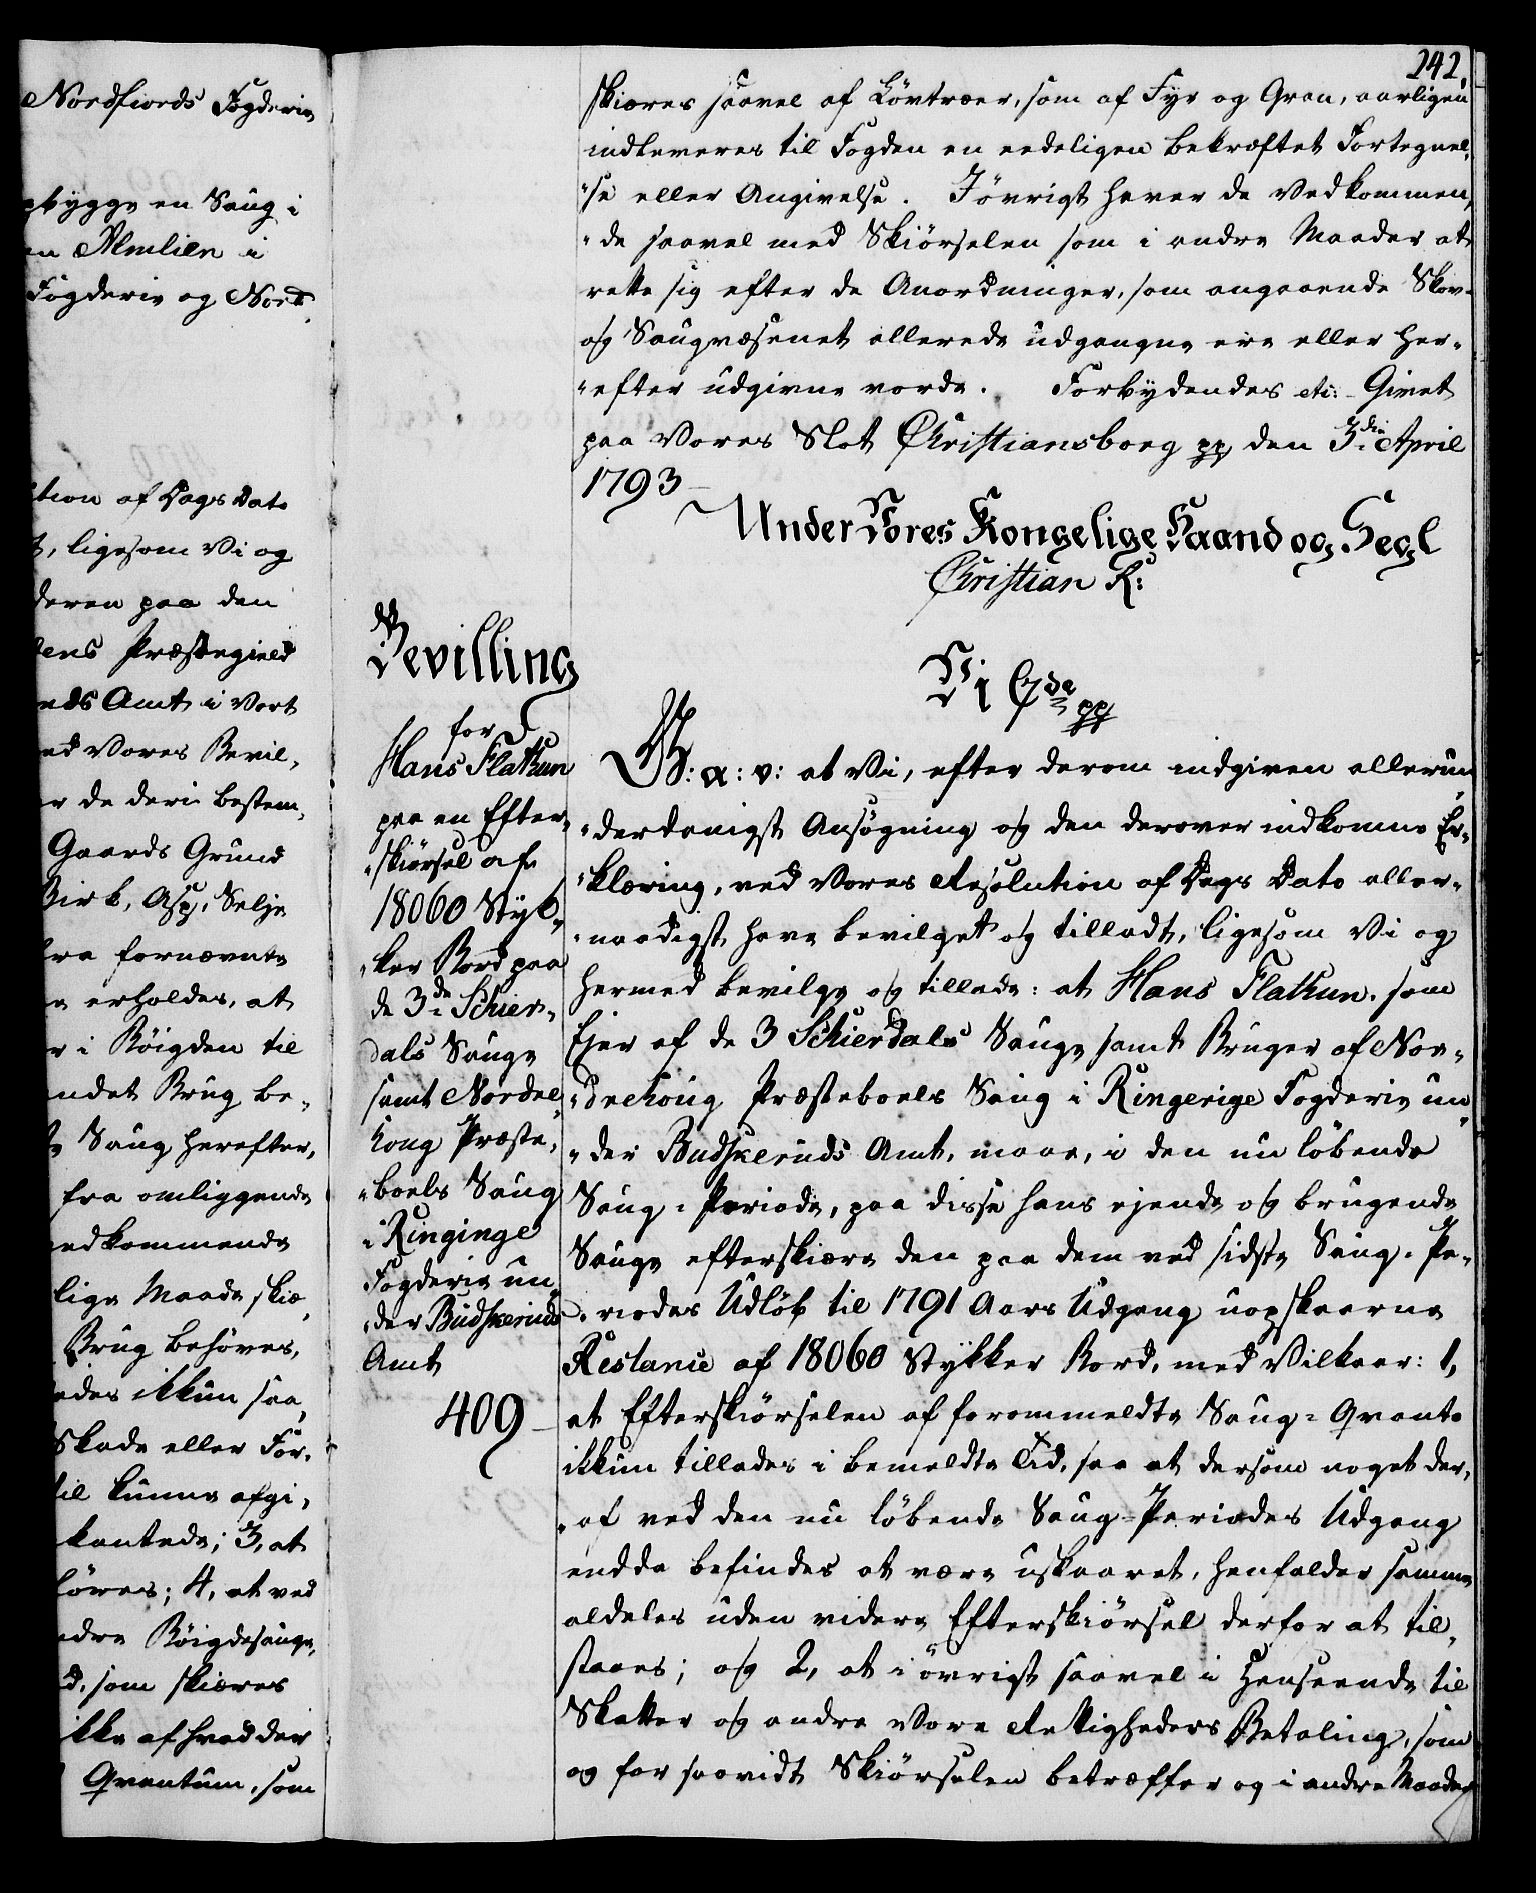 Nordfiords Fogderie
opbygge en Saug i
en Almilien i
Fogderie og Nord,
ution af Dags Dato
t, ligesom Vi og
deren paa den
dens Præstegield
nds Amt i Vort
ed Vores Bevil,
r de deri bestem,
Gaards Grund
Birk, Asp, Selje
fra fornævnte
e erholdes, at
r i Bøigden til
andet Brug be„
Saug herefter,
fra omliggende
edkommende
lige Maade skiæ,
Brug behøves,
edes ikkun saa,
Skade eller For„
til kunne afgi,
kantede; 3, at
føres; 4, at ved
andre Bøigdesauge,
d, som skiæres
ikke af hvad der
Qvantum, som
242.
skiæres saavel af Løvtræer, som af Fyr og Gran, aarligen
indleveres til Fogden en eedeligen bekræftet Fortegnel,
„se eller Angivelse. Iøvrigt haver de Vedkommen,
„de saavel med Skiørselen som i andre Maader at
rette sig efter de Anordninger, som angaaende Skov-
og Saugvæsenet allerede udgangne ere eller her„
„efter udgivne vorde. Forbydendes etc: Givet
paa Vores Slot Christiansborg pp den 3die April
1793
Under Vores Kongelige Haand og Segl
Christian R:
Bevilling
for
Hans Flathun
paa en Efter„
„skiørsel af
18060 Styk„
„ker Bord paa
de 3de Schier„
dals Sauge
samt Nordre„
houg Præste„
„boels Saug
i Ringinge
Fogderie un„
„der Budskeruds
Amt
409
Vi C7de pp
G: a: v: at Vi, efter derom indgiven allerun
„derdanigst Ansøgning og den derover indkomne Er„
„klæring, ved Vores Resolution af Dags Dato aller„
„naadigst have bevilget og tilladt, ligesom Vi og
hermed bevilge og tillade: at Hans Flathun, som
Ejer af de 3 Schierdals Sauge samt Bruger af Nor„
„drehoug Præsteboels Saug i Ringerige Fogderie un„
„der Budskeruds Amt, maae, i den nu løbende
Saug-Periode, paa disse hans ejende og brugende
Sauge efterskiære den paa dem ved sidste Saug-Pe„
„riodes Udløb til 1791 Aars Udgang uopskaarne
Restance af 18060 Stykker Bord, med Vilkaar: 1,
at Efterskiørselen af forommeldte Saug-Qvanto
ikkun tillades i bemeldte Tid, saa at dersom noget der„
„af ved den nu løbende Saug-Periodes Udgang
endda befindes at være uskaaret, henfalder samme
aldeles uden videre Efterskiørsel derfor at til„
staaes; og 2, at iøvrigt saavel i Henseende til
Skatter og andre Vore Rettigheders Betaling, som
og for saavidt Skiørselen betræffer og i andre Maader